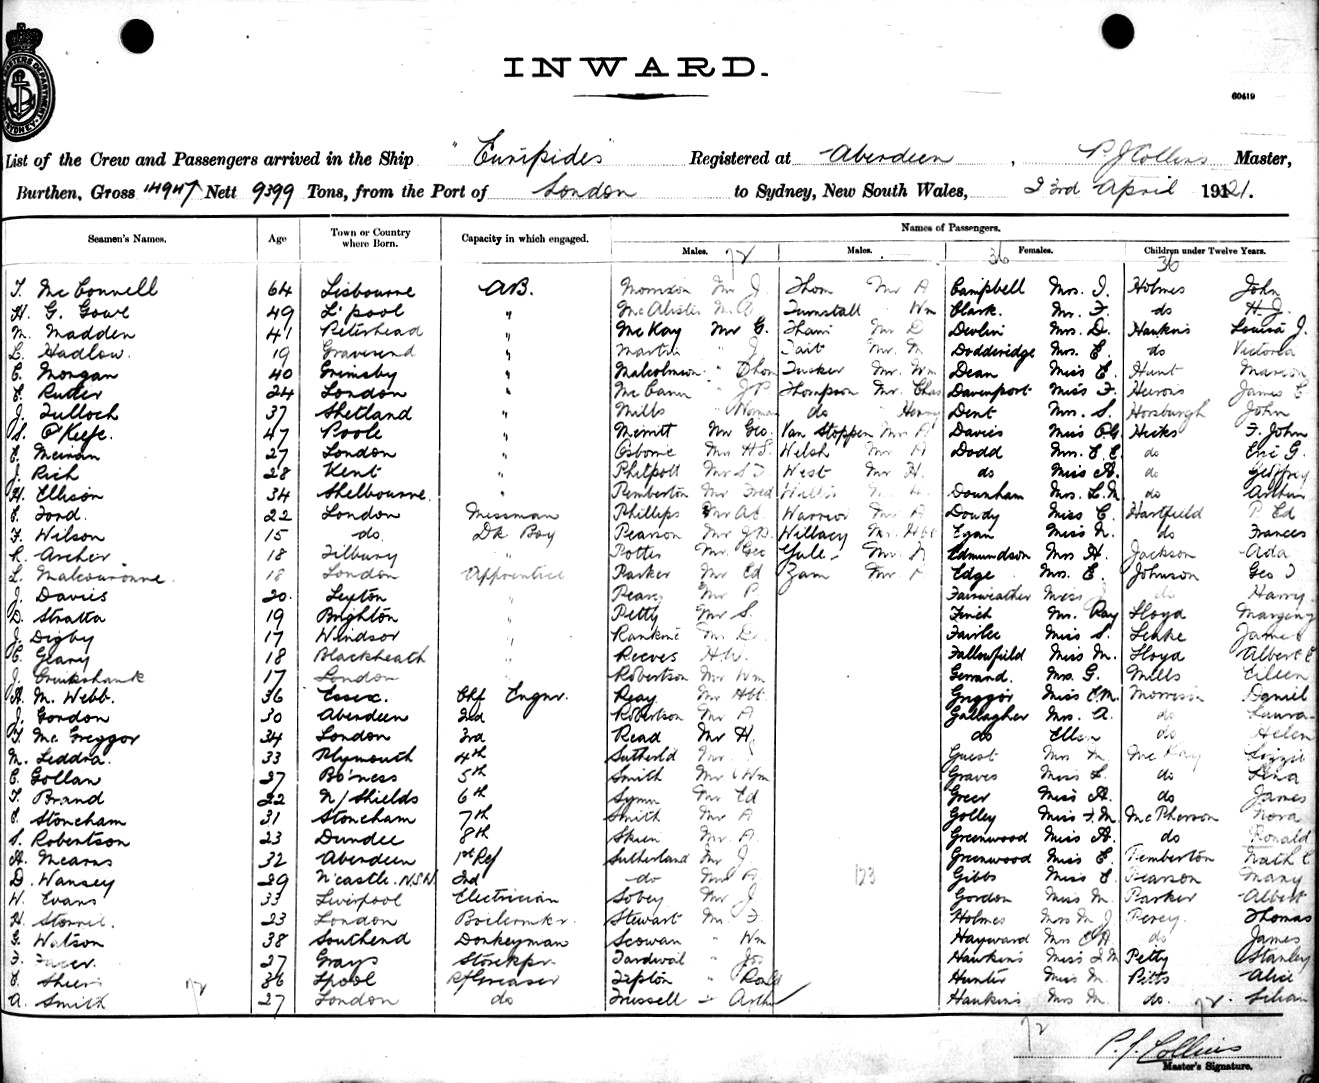 INWARD.
60419
List of the Crew and Passengers arrived in the Ship "Euripides" Registered at Aberdeen, P. J. Collins Master,
Burthen, Gross 14947 Nett 9399 Tons, from the Port of London to Sydney, New South Wales, 23rd April 1921.
Seamen's Names. Age Town or Country where Born. Capacity in which engaged. Names of Passengers.
Males. 72 Males. 36 Females. 36 Children under Twelve Years.
T. McConnell 64 Lisbourne AB. Morrison Mr J. Thom Mr A Campbell Mrs. I. Holmes John
H. G. Gowl 49 L'pool " McAlister Mr Tunstall " Wm Clark. Mr. F. do H. J.
M. Madden 41 Peterhead " McKay Mr G. Mr D Devlin Mrs. D. Hankins Louisa J.
L. Hadlow. 19 Gravesend " Martin " J. Tait Mr. M Dodderidge Mrs. E. do Victoria
C. Morgan 40 Grimsby " Malcolmson " Thom Tucker Mr. Wm Dean Miss E. Hunt Marion
E. Rutter 24 London " McCann " J P Thompson Mr. Chas Davenport Miss F. James E
J. Tulloch 37 Shetland " Mills " Norman do " Henry Dent Mrs. S. Horsburgh John
S. O'Keefe. 47 Poole " Merritt Mr Geo. Van Stoppen Mr A Davies Miss Hicks F. John
E. 27 London " Osborne Mr H S. Welsh Mr A Dodd Mrs. E E. do Eric G.
J. Rich 28 Kent " Philpott Mr S T West Mr H. do Miss A. do Geoffrey
H. Ellison 34 Shelbourne. " Pemberton Mr Fred Wallis Downham Mrs. L. M. do Arthur
E. Ford. 22 London Messman Phillips Mr A E Warrior Mr A Dowdy Miss E. Hartfield P Ed
F. Wilson 15 do. Dk Boy Pearson Mr J D. Willacy Mr. Hbt Egan Miss N. do Frances
R. Archer 18 Tilbury " Potter Mr. Geo Yule Mr. Edmundson Mrs H. Jackson Ada
L. Malcouronne. 18 London Apprentice Parker Mr Ed Zam Mr. Edge Mrs. E. Johnson Geo T
J. Davies 20. Leyton " Mr P. Fairweather Miss do Harry
D. Stratta 19 Brighton " Petty Mr S. Finch Mr. Ray Lloyd Margery
J. Digby 17 Windsor " Rankine Mr. D. Fairlee Miss S. Leake James
C. Geary 18 Blackheath " Reeves H W. Fallowfield Miss M. Lloyd Albert E
J. Cruikshank 17 London " Robertson Mr Wm Gerrand. Mrs. G. Mills Eileen
H. M. Webb. 36 Essex. Chf Engnr. Reay Mr Hbt Greggor Miss E M. Morrison Daniel
J. Gordon 30 Aberdeen 2nd Robertson Mr A Gallagher Mrs. A. do Laura
T. McGreggor 34 London 3rd Read Mr H. do Ellen do Helen
M. Leddra. 33 Plymouth 4th Sutherld Mr. Guest Mrs. M. McKay Lizzie
C. Gollan 27 Bo'ness 5th Smith Mr Wm Graves Miss L. do Lena
T. Brand 22 N/Shields 6th Symn Mr Ed Greer Miss A. do James
E. Stoneham 31 Stoneham 7th Smith Mr A Golley Miss F. M. McPherson Nora
S. Robertson 23 Dundee 8th Skein Mr. A. Greenwood Miss A. do Ronald
A. Mearns 32 Aberdeen 1st Ref Sutherland Mr J. Greenwood Miss E. Pemberton Nath E
D. Wansey 29 N'castle. N.S.W. 2nd do Mr A. 123 Gibbs Miss E Pearson Mary
W. Evans 33 Liverpool Electrician Sobey Mr J. Gordon Miss M. Parker Albert
H. 23 London Boilermkr. Stewart Mr. F. Holmes Mrs M J Percy. Thomas
G. Watson 38 Southend Donkeyman Scowan " Wm Hayward Mrs E A. do James
F. 27 Grays Storekpr. Tardwell " Jos Hawkins Miss I M Petty Stanley
E. 72 36 Lpool Rf Greaser Tipton " Ronld Hunter Miss M. Pitts Alice
A. Smith 27 London do Trussell " Arthr Hankins Mrs M. do. 72. Lilian
72
P. J. Collins
Master's Signature.